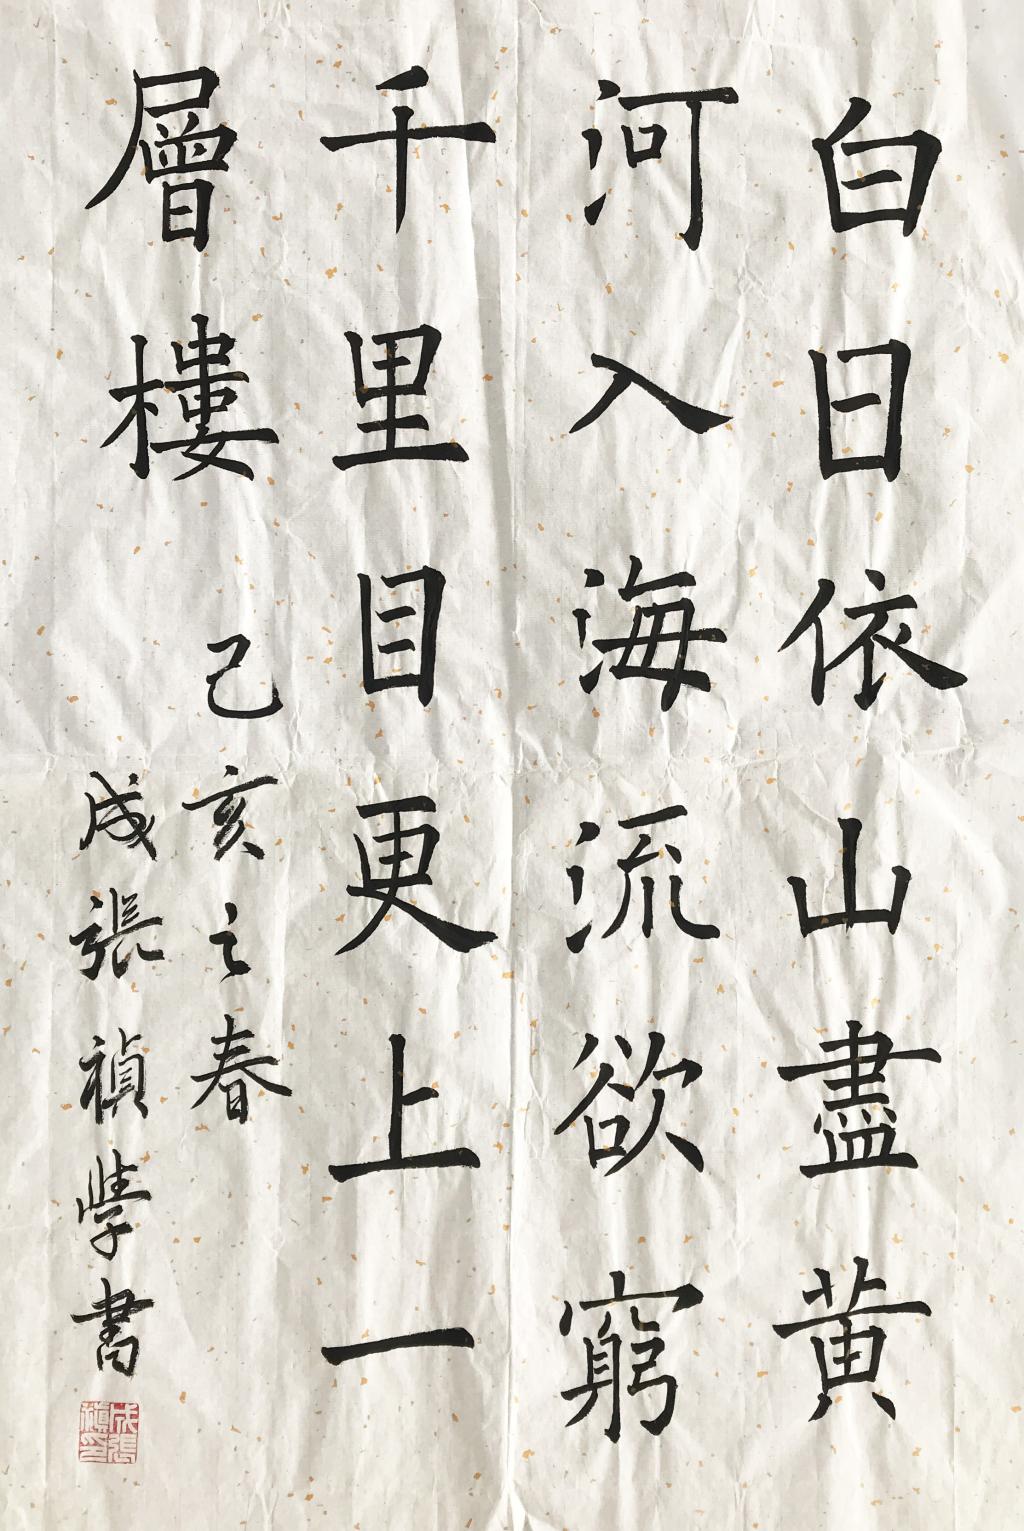 白日依山盡黄
河入海流欲窮
千里目更上一
層樓
己亥之春
成張禎學書
成張禎印